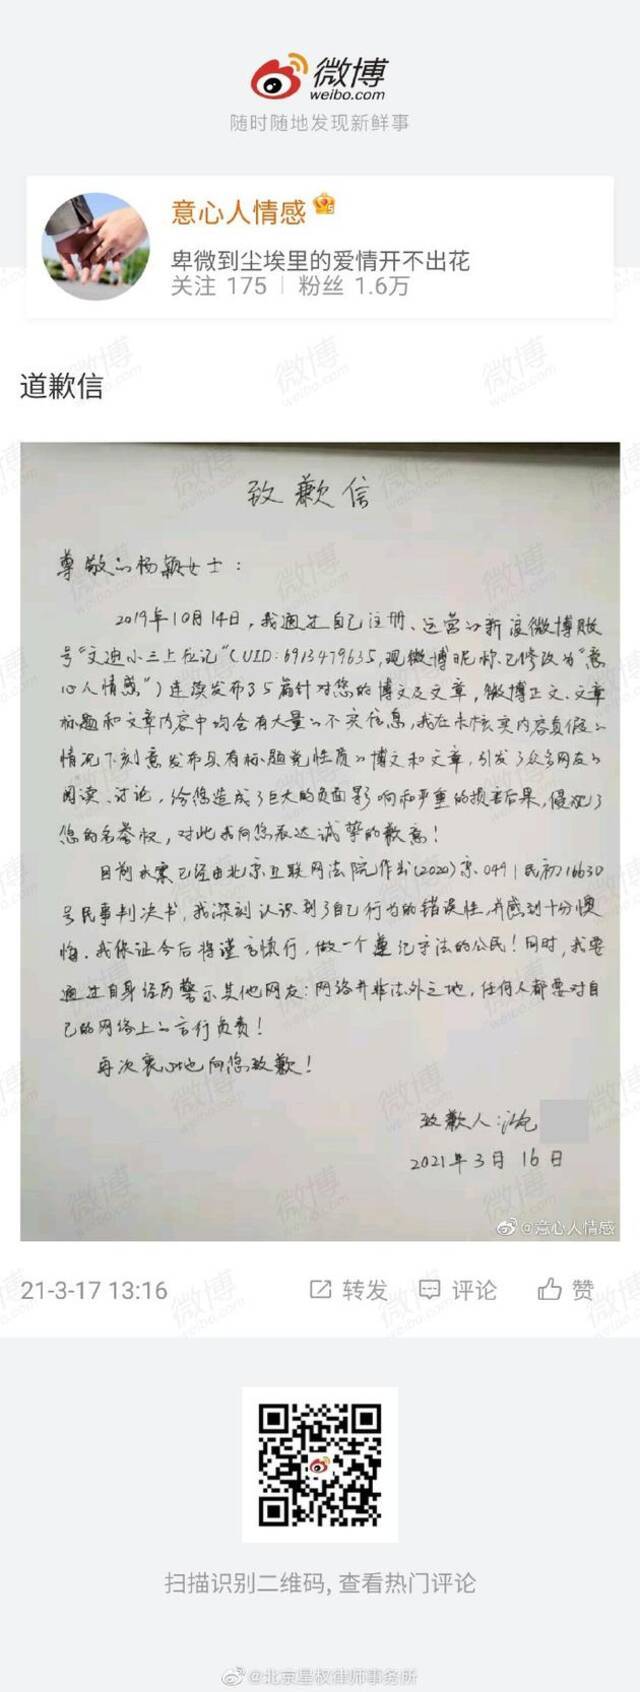 微博
weibo.com
随时随地发现新鲜事
意心人情感
卑微到尘埃里的爱情开不出花
关注 175 粉丝 1.6万
道歉信
致歉信
尊敬的杨颖女士：
2019年10月14日，我通过自己注册、运营的新浪微博账
号“文迪小三上位记”（UID：6913479635，现微博昵称已修改为“意
心人情感”）连续发布了5篇针对您的博文及文章，微博正文、文章
标题和文章内容中均含有大量的不实信息，我在未核实内容真假的
情况下刻意发布具有标题党性质的博文和文章，引发了众多网友的
阅读、讨论，给您造成了巨大的负面影响和严重的损害后果，侵犯了
您的名誉权，对此我向您表达诚挚的歉意！
目前本案已经由北京互联网法院作出（2020）京0491民初16630
号民事判决书，我深刻认识到了自己行为的错误性，并感到十分懊
悔。我保证今后将谨言慎行，做一个遵纪守法的公民！同时，我要
通过自身经历警示其他网友：网络并非法外之地，任何人都要对自
己的网络上的言行负责！
再次衷心地向您致歉！
致歉人：
2021年3月16日
@意心人情感
21-3-17 13:16 转发 评论 赞
扫描识别二维码, 查看热门评论
@北京星权律师事务所